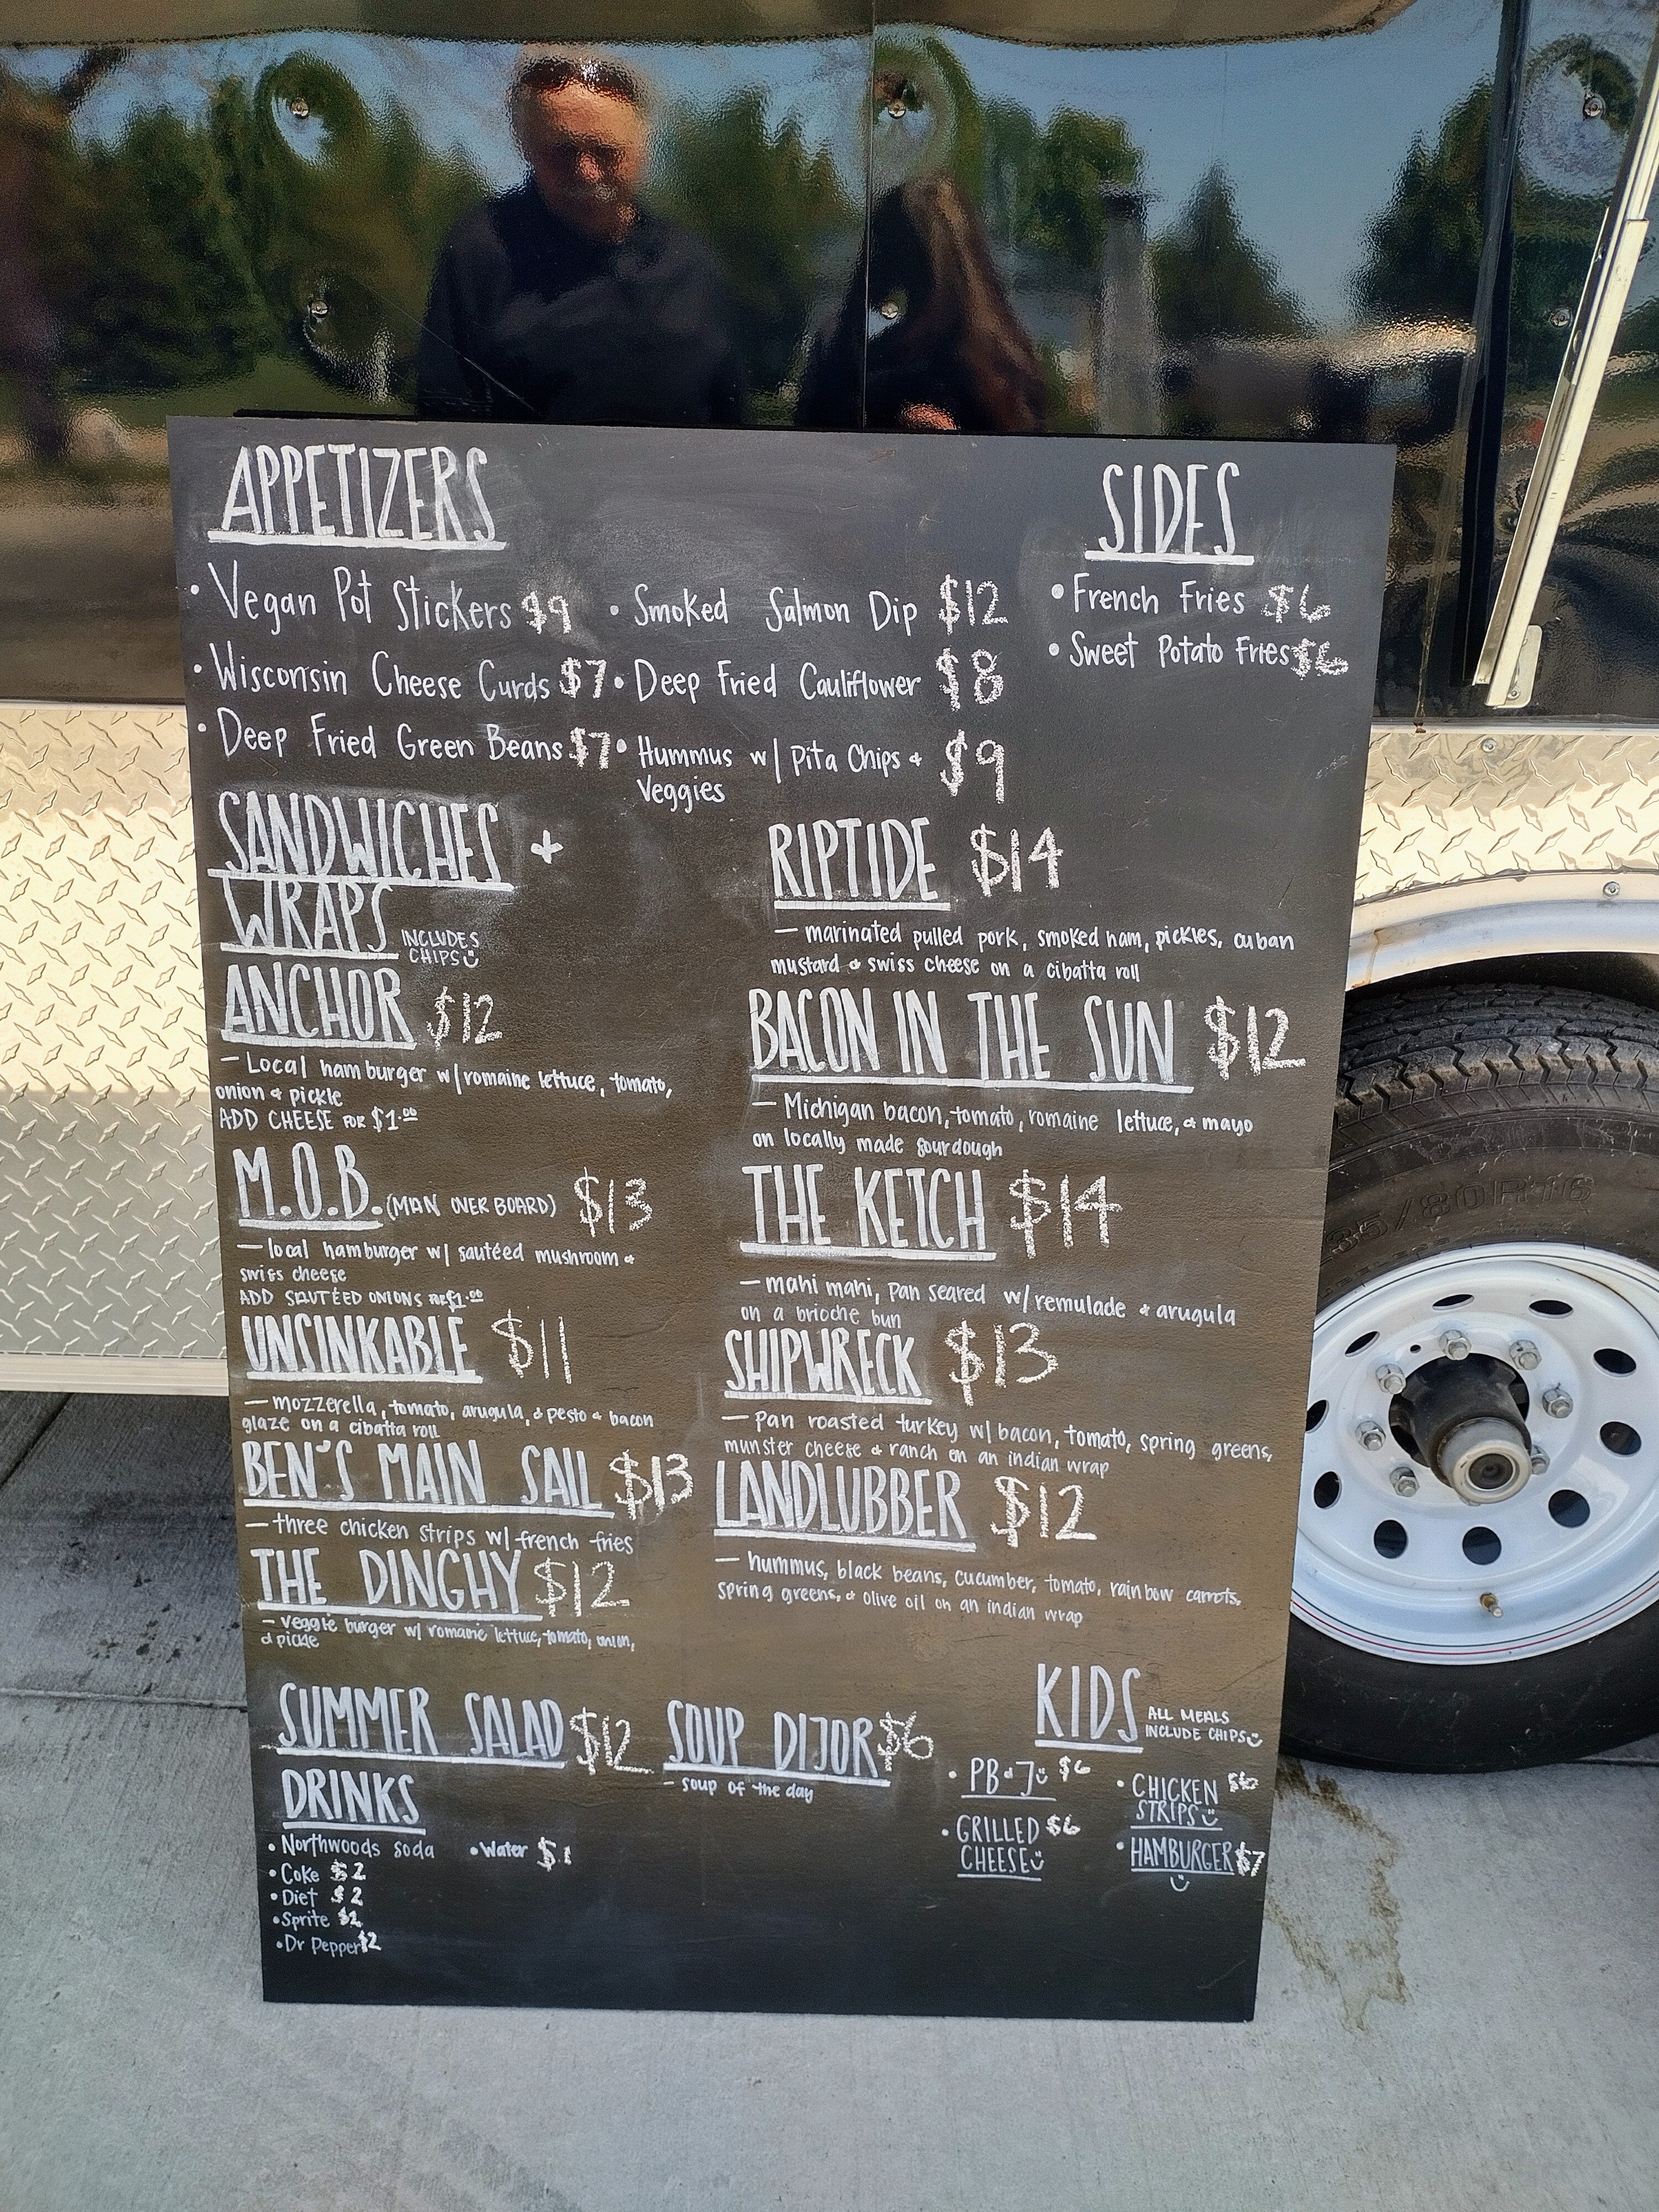 APPETIZERS
• Vegan Pot Stickers $9
• Wisconsin Cheese Curds $7
• Deep Fried Green Beans $7
• Smoked Salmon Dip $12
• Deep Fried Cauliflower $8
• Hummus w/ Pita Chips & $9
Veggies
SIDES
• French Fries $6
• Sweet Potato Fries $6
SANDWICHES +
WRAPS INCLUDES
CHIPS
ANCHOR $12
– Local hamburger w/ romaine lettuce, tomato,
onion & pickle
ADD CHEESE FOR $1.00
M.O.B. (MAN OVER BOARD) $13
– local hamburger w/ sautéed mushroom &
swiss cheese
ADD SAUTÉED ONIONS FOR $1.00
UNSINKABLE $11
– mozzerella, tomato, arugula, & pesto & bacon
glaze on a cibatta roll
BEN'S MAIN SAIL $13
– three chicken strips w/ french fries
THE DINGHY $12
– veggie burger w/ romaine lettuce, tomato, onion,
& pickle
RIPTIDE $14
– marinated pulled pork, smoked ham, pickles, cuban
mustard & swiss cheese on a cibatta roll
BACON IN THE SUN $12
– Michigan bacon, tomato, romaine lettuce, & mayo
on locally made sourdough
THE KETCH $14
– mahi mahi, pan seared w/ remulade & arugula
on a brioche bun
SHIPWRECK $13
– pan roasted turkey w/ bacon, tomato, spring greens,
munster cheese & ranch on an indian wrap
LANDLUBBER $12
– hummus, black beans, cucumber, tomato, rainbow carrots,
spring greens, & olive oil on an indian wrap
SUMMER SALAD $12
SOUP DIJOR $6
– soup of the day
DRINKS
• Northwoods soda
• Coke $2
• Diet $2
• Sprite $2
• Dr Pepper $2
• Water $1
KIDS ALL MEALS
INCLUDE CHIPS
• PB & J $6
• GRILLED $6
CHEESE
• CHICKEN $6
STRIPS
• HAMBURGER $7
35/80R16